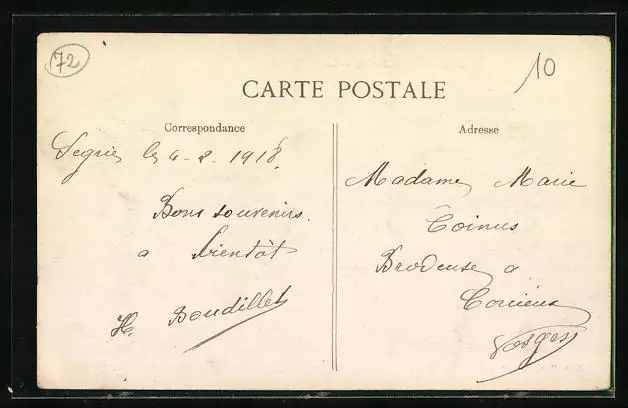 72
10
CARTE POSTALE
Correspondance
Adresse
Segrie le 4-2-1918
Bons souvenirs.
a bientôt
H. Boudillet
Madame Marie
Coinus
Brodeuse a
Corcieux
Vosges